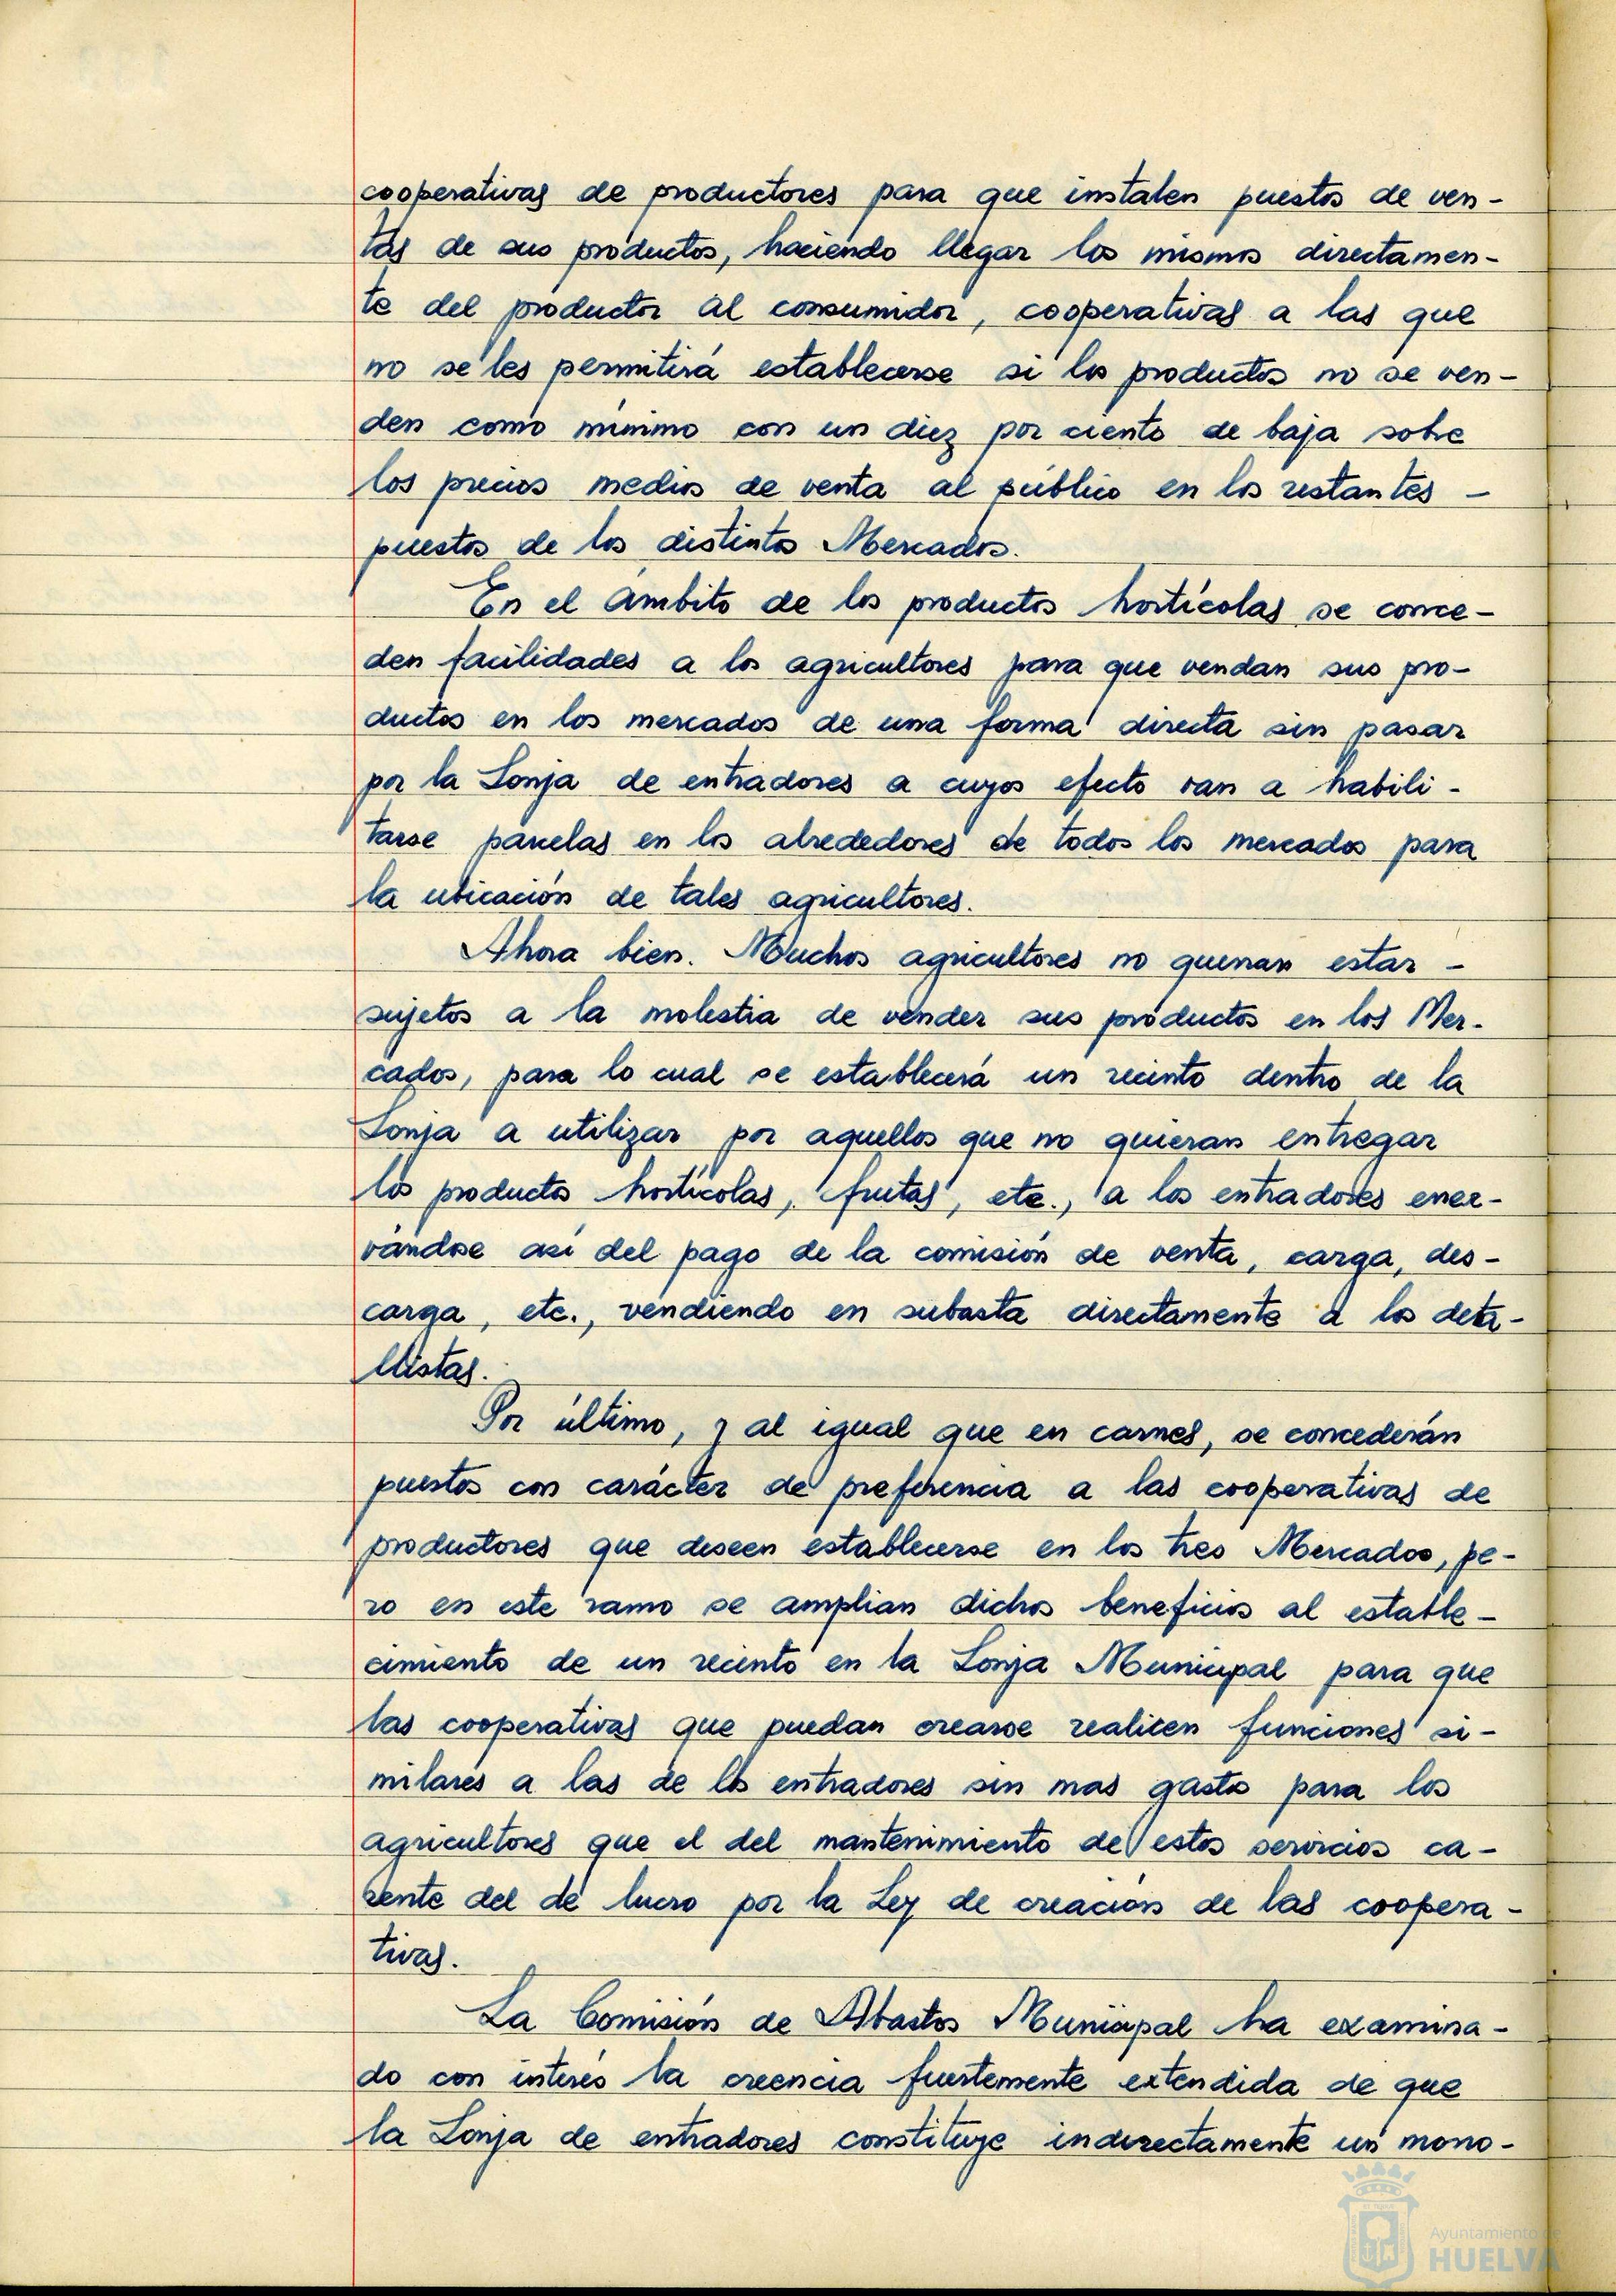 cooperativas de productores para que instalen puestos de ven-
tas de sus productos, haciendo llegar los mismos directamen-
te del productor al consumidor, cooperativas a las que
no se les permitirá establecerse si los productos no se ven-
den como mínimo con un diez por ciento de baja sobre
los precios medios de venta al público en los restantes -
puestos de los distintos Mercados.
En el ámbito de los productos hortícolas se conce-
den facilidades a los agricultores para que vendan sus pro-
ductos en los mercados de una forma directa sin pasar
por la Lonja de entradores a cuyos efecto van a habili-
tarse parcelas en los alrededores de todos los mercados para
la ubicación de tales agricultores.
Ahora bien. Muchos agricultores no querran estar -
sujetos a la molestia de vender sus productos en los Mer-
cados, para lo cual se establecerá un recinto dentro de la
Lonja a utilizar por aquellos que no quieran entregar
los productos hortícolas, frutas, etc., a los entradores ener-
vándose así del pago de la comisión de venta, carga, des-
carga, etc., vendiendo en subasta directamente a los deta-
llistas.
Por último, y al igual que en carnes, se concederán
puestos con carácter de preferencia a las cooperativas de
productores que deseen establecerse en los tres Mercados, pe-
ro en este ramo se amplian dichos beneficios al estable-
cimiento de un recinto en la Lonja Municipal para que
las cooperativas que puedan crearse realicen funciones si-
milares a las de los entradores sin mas gastos para los
agricultores que el del mantenimiento de estos servicios ca-
rente del de lucro por la Ley de creación de las coopera-
tivas.
La Comisión de Abastos Municipal ha examina-
do con interés la creencia fuertemente extendida de que
la Lonja de entradores constituye indirectamente un mono-
Ayuntamiento de
HUELVA